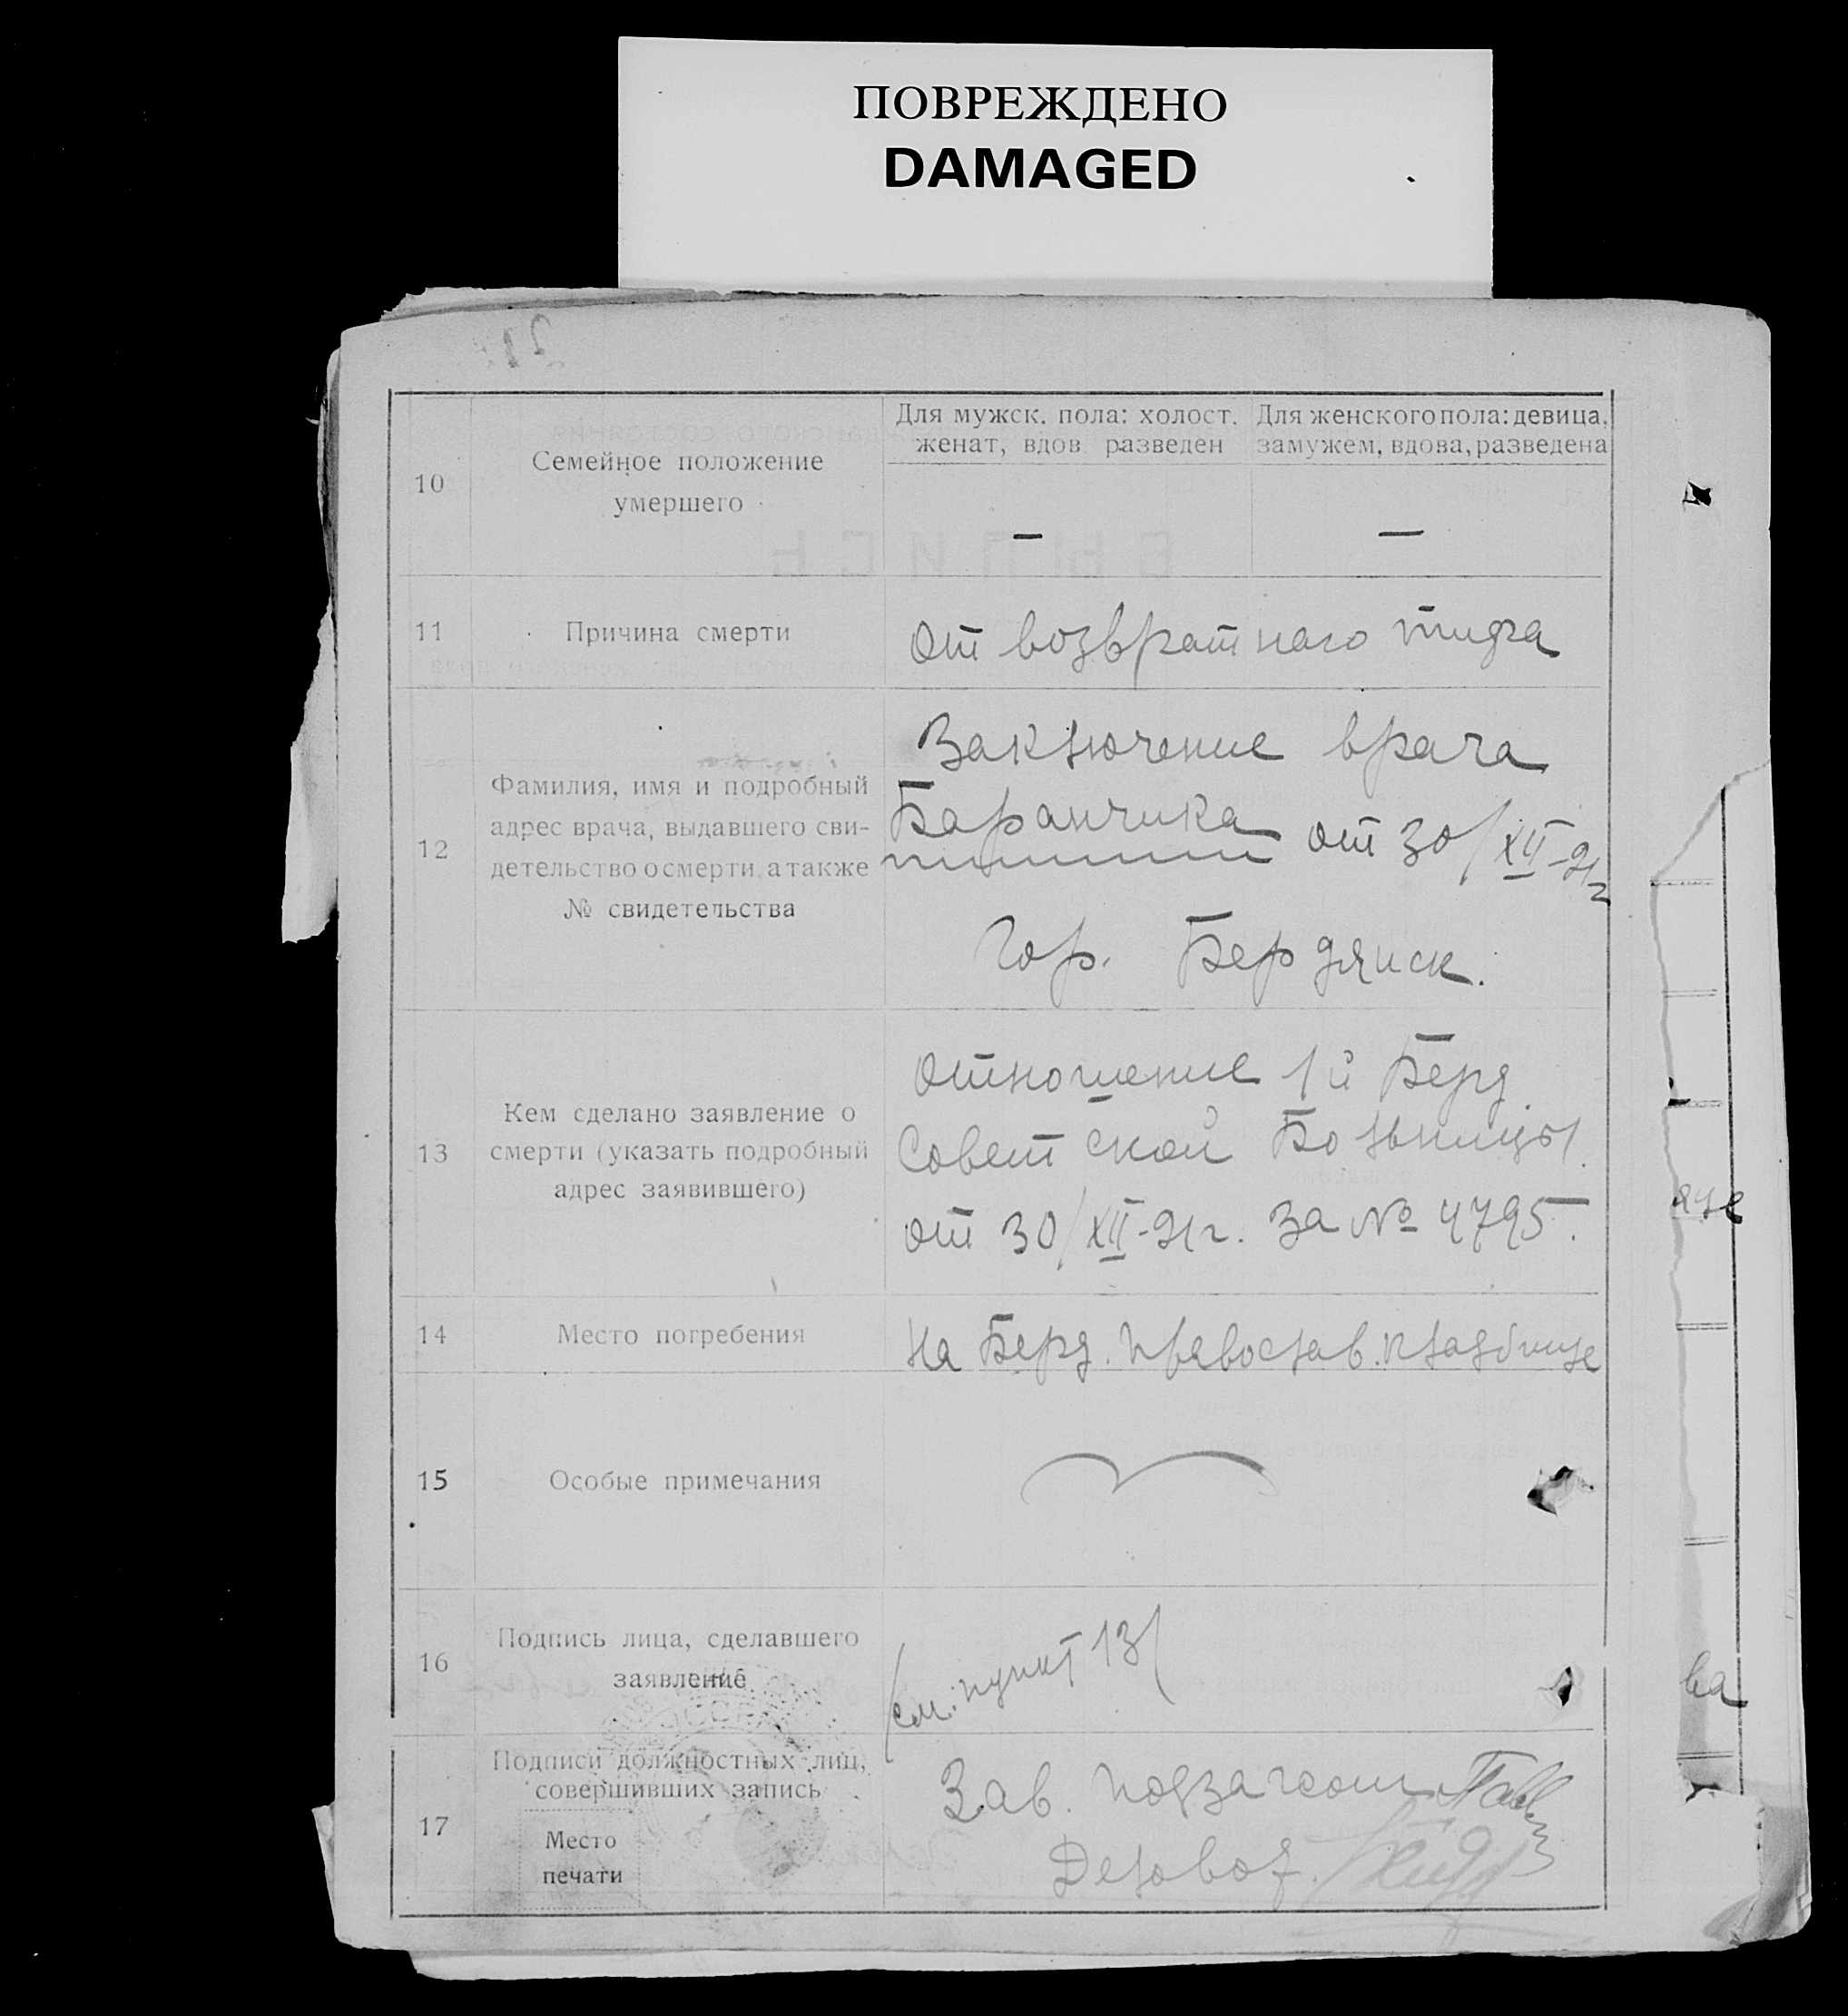 ПОВРЕЖДЕНО
DAMAGED
10
Семейное положение
умершего
Для мужск. пола: холост.
женат, вдов разведен
Для женского пола: девица,
замужем, вдова, разведена
—
—
11
Причина смерти
От возвратнаго тифа
12
Фамилия, имя и подробный
адрес врача, выдавшего сви-
детельство о смерти, а также
№ свидетельства
Заключение врача
Баранчика от 30/XII-21г
Гор. Бердянск.
13
Кем сделано заявление о
смерти (указать подробный
адрес заявившего)
Отношение 1й Берд.
Советской Больницы
от 30/XII-21г. за № 4795.
14
Место погребения
На Берд. православ. кладбище
15
Особые примечания
16
Подпись лица, сделавшего
заявление
/см. пункт 13/
17
Подписи должностных лиц,
совершивших запись
Место
печати
Зав. подзагсом
Деловод.
ва